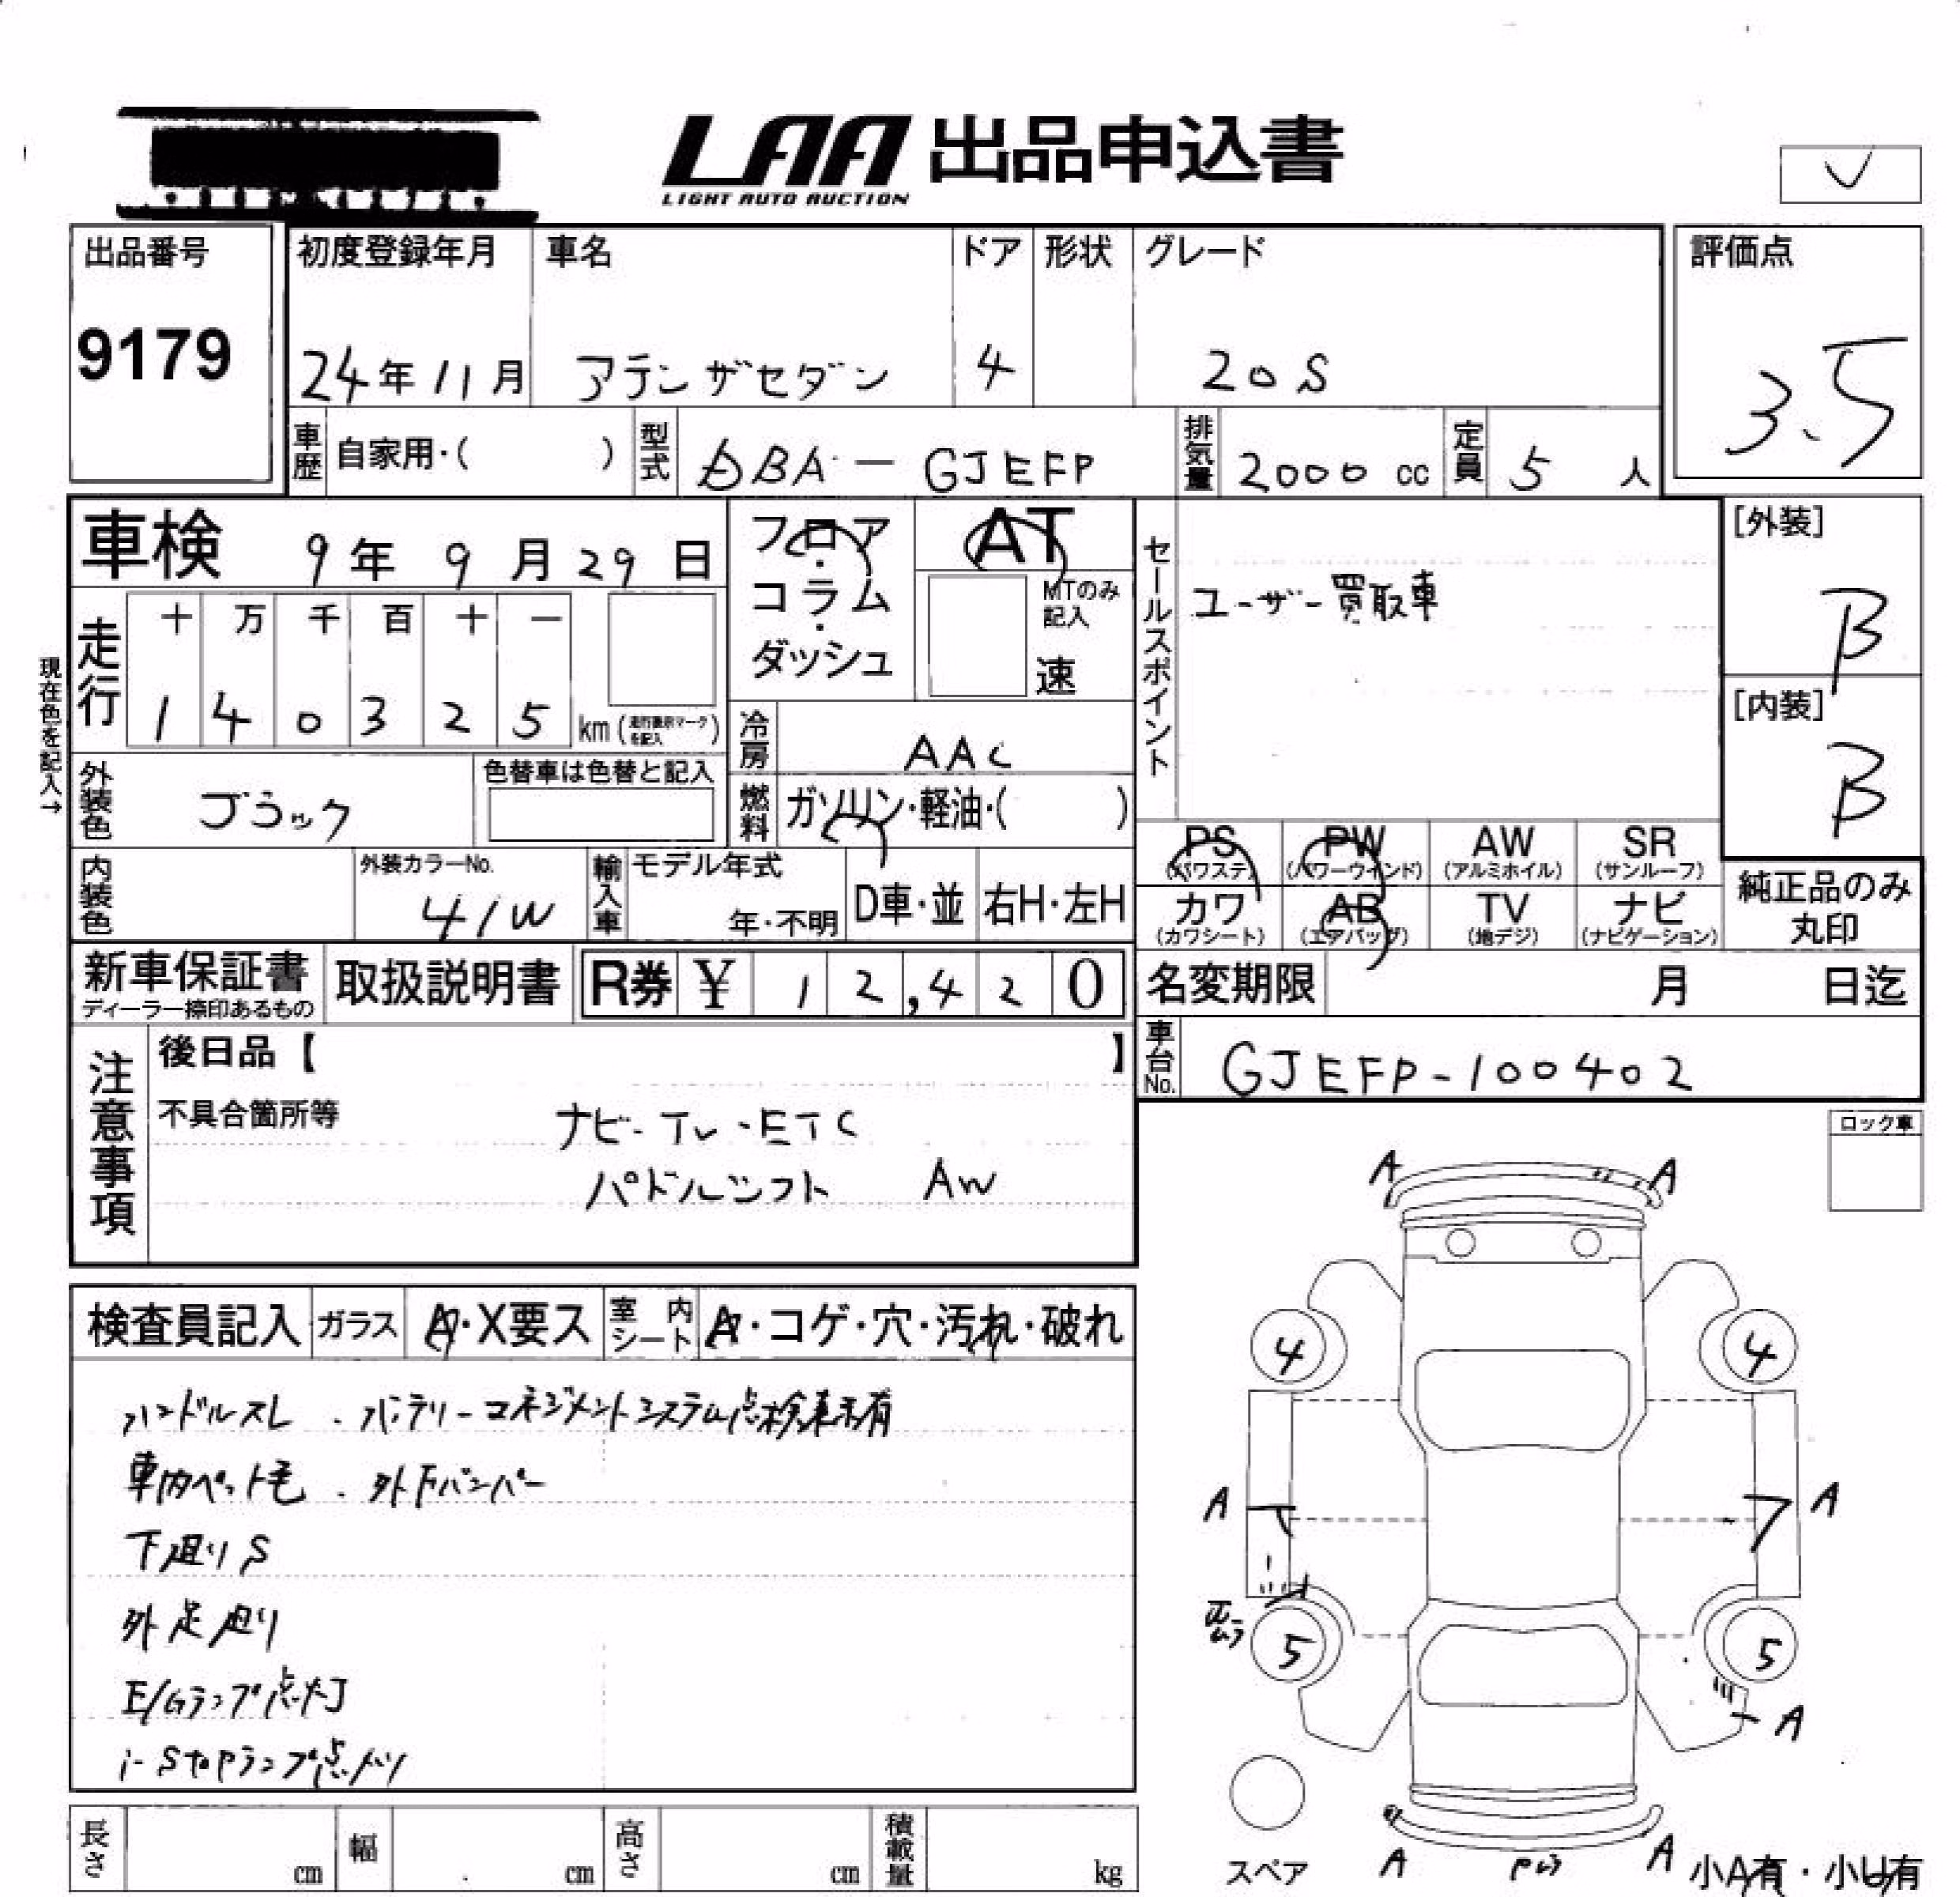 LAA 出品申込書
LIGHT AUTO AUCTION
出品番号
9179
初度登録年月
24年11月
車名
アテンザセダン
ドア
4
形状
グレード
20S
評価点
3.5
車歴
自家用・( )
型式
DBA-GJEFP
排気量
2000 cc
定員
5 人
現在色を記入→
車検 9年 9月 29日
走行
十 万 千 百 十 一
1 4 0 3 2 5 km (走行表示マークを記入)
フロア・コラム・ダッシュ
AT
MTのみ記入
速
セールスポイント
ユーザー買取車
[外装]
B
[内装]
B
外装色
ブラック
色替車は色替と記入
冷房
AAC
燃料
ガソリン・軽油・( )
内装色
外装カラーNo.
41W
輸入車
モデル年式
年・不明
D車・並
右H・左H
PS
(パワステ)
PW
(パワーウインド)
AW
(アルミホイル)
SR
(サンルーフ)
カワ
(カワシート)
AB
(エアバッグ)
TV
(地デジ)
ナビ
(ナビゲーション)
純正品のみ
丸印
新車保証書
ディーラー捺印あるもの
取扱説明書
R券 ¥ 12,420
名変期限 月 日迄
車台No.
GJEFP-100402
注意事項
後日品【 】
不具合箇所等
ナビ・TV・ETC
パドルシフト AW
ロック車
検査員記入
ガラス
A・X要ス
室内シート
A・コゲ・穴・汚れ・破れ
ハンドルスレ . バッテリーマネジメントシステム点検表示有
車内ペット毛 . 外下バンパー
下廻りS
外足廻り
E/Gランプ点灯
i-stopランプ点灯
A A
4 4
A A
5 5
A
スペア
A A
小A有・小U有
長さ cm
幅 cm
高さ cm
積載量 kg